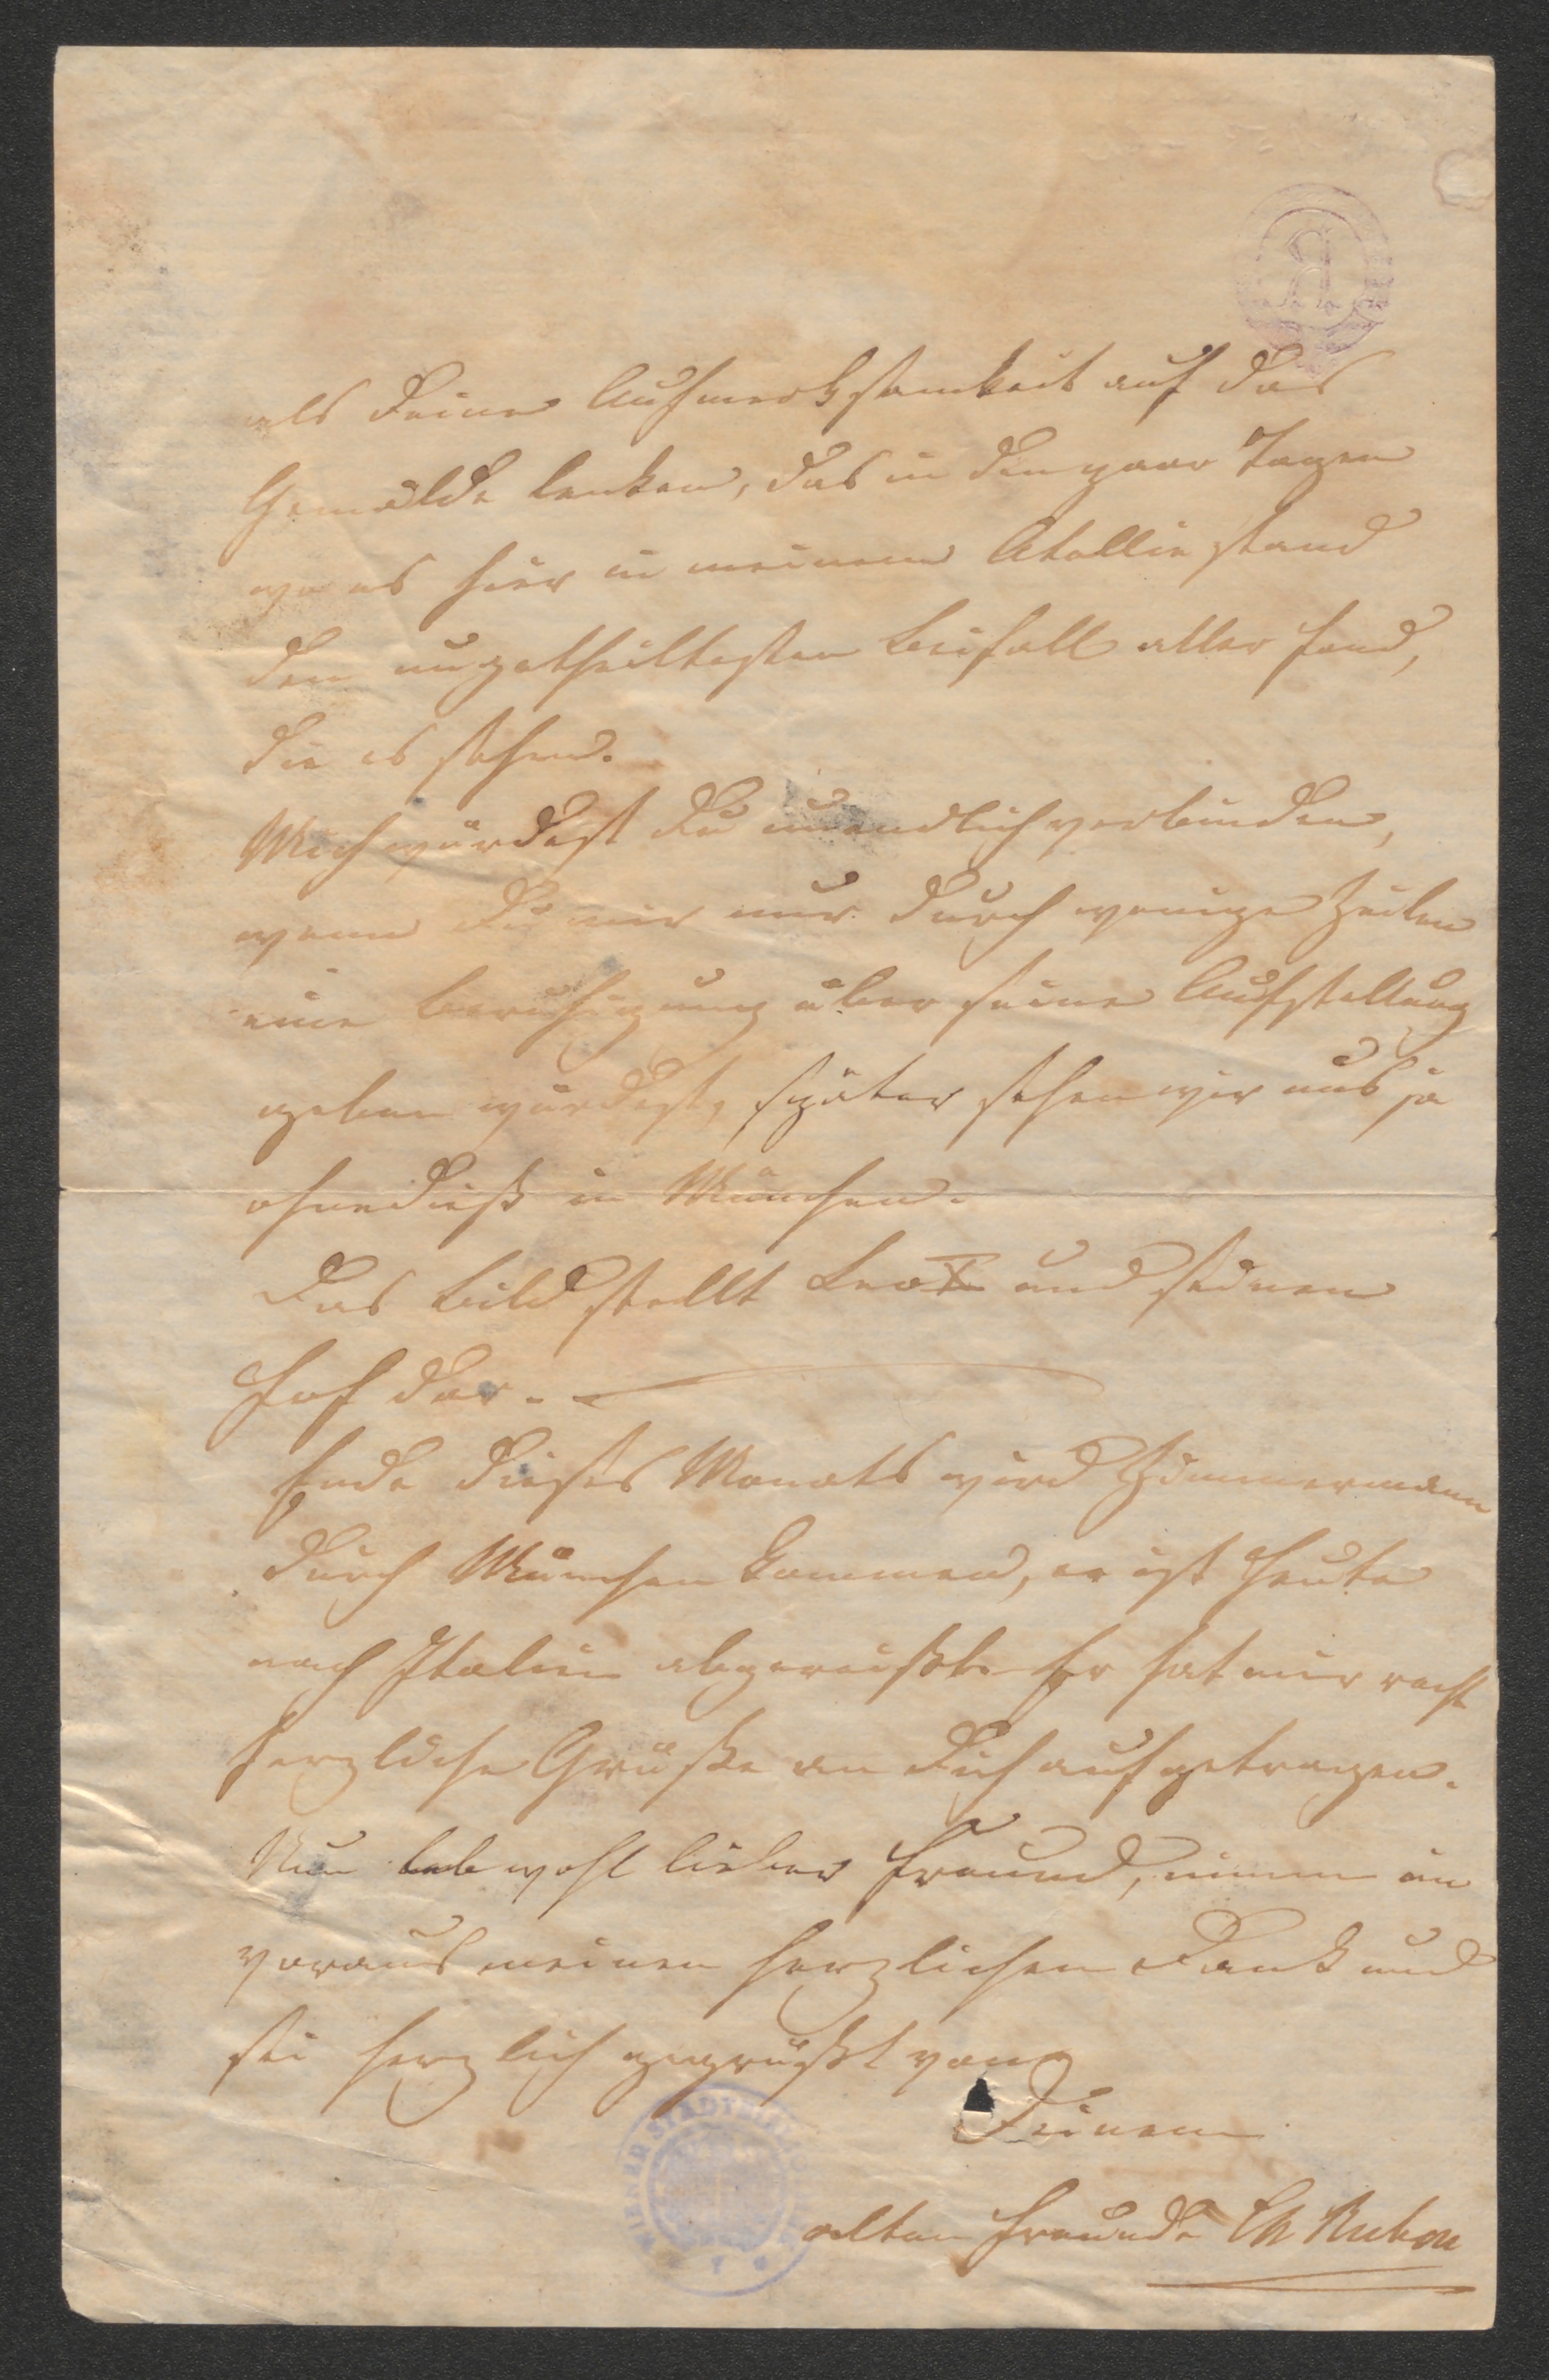 als Deine Aufmerksamkeit auf das
Gemälde lenken, das in den paar Tagen
wo es hier in meinem Atellie stand
den ungetheiltesten Beifall aller fand,
die es sahen.
Mich würdest Du unendlich verbinden,
wenn Du mir nur durch wenige Zeilen
eine Beruhigung über seine Aufstellung
geben würdest, später sehen wir uns ja
ohnedieß in München.
Das Bild stellt Leo X und seinen
Hof dar. —
Ende dieses Monats wird Zimmermann
durch München kommen, er ist heute
nach Italien abgereißt. Er hat mir recht
herzliche Grüße an Dich aufgetragen.
Nun leb wohl lieber Freund, nimm im
voraus meinen herzlichen Dank und
sei herzlich gegrüßt von
Deinem
alten Freunde Ch Ruben
WIENER STADTBIBLIOTHEK